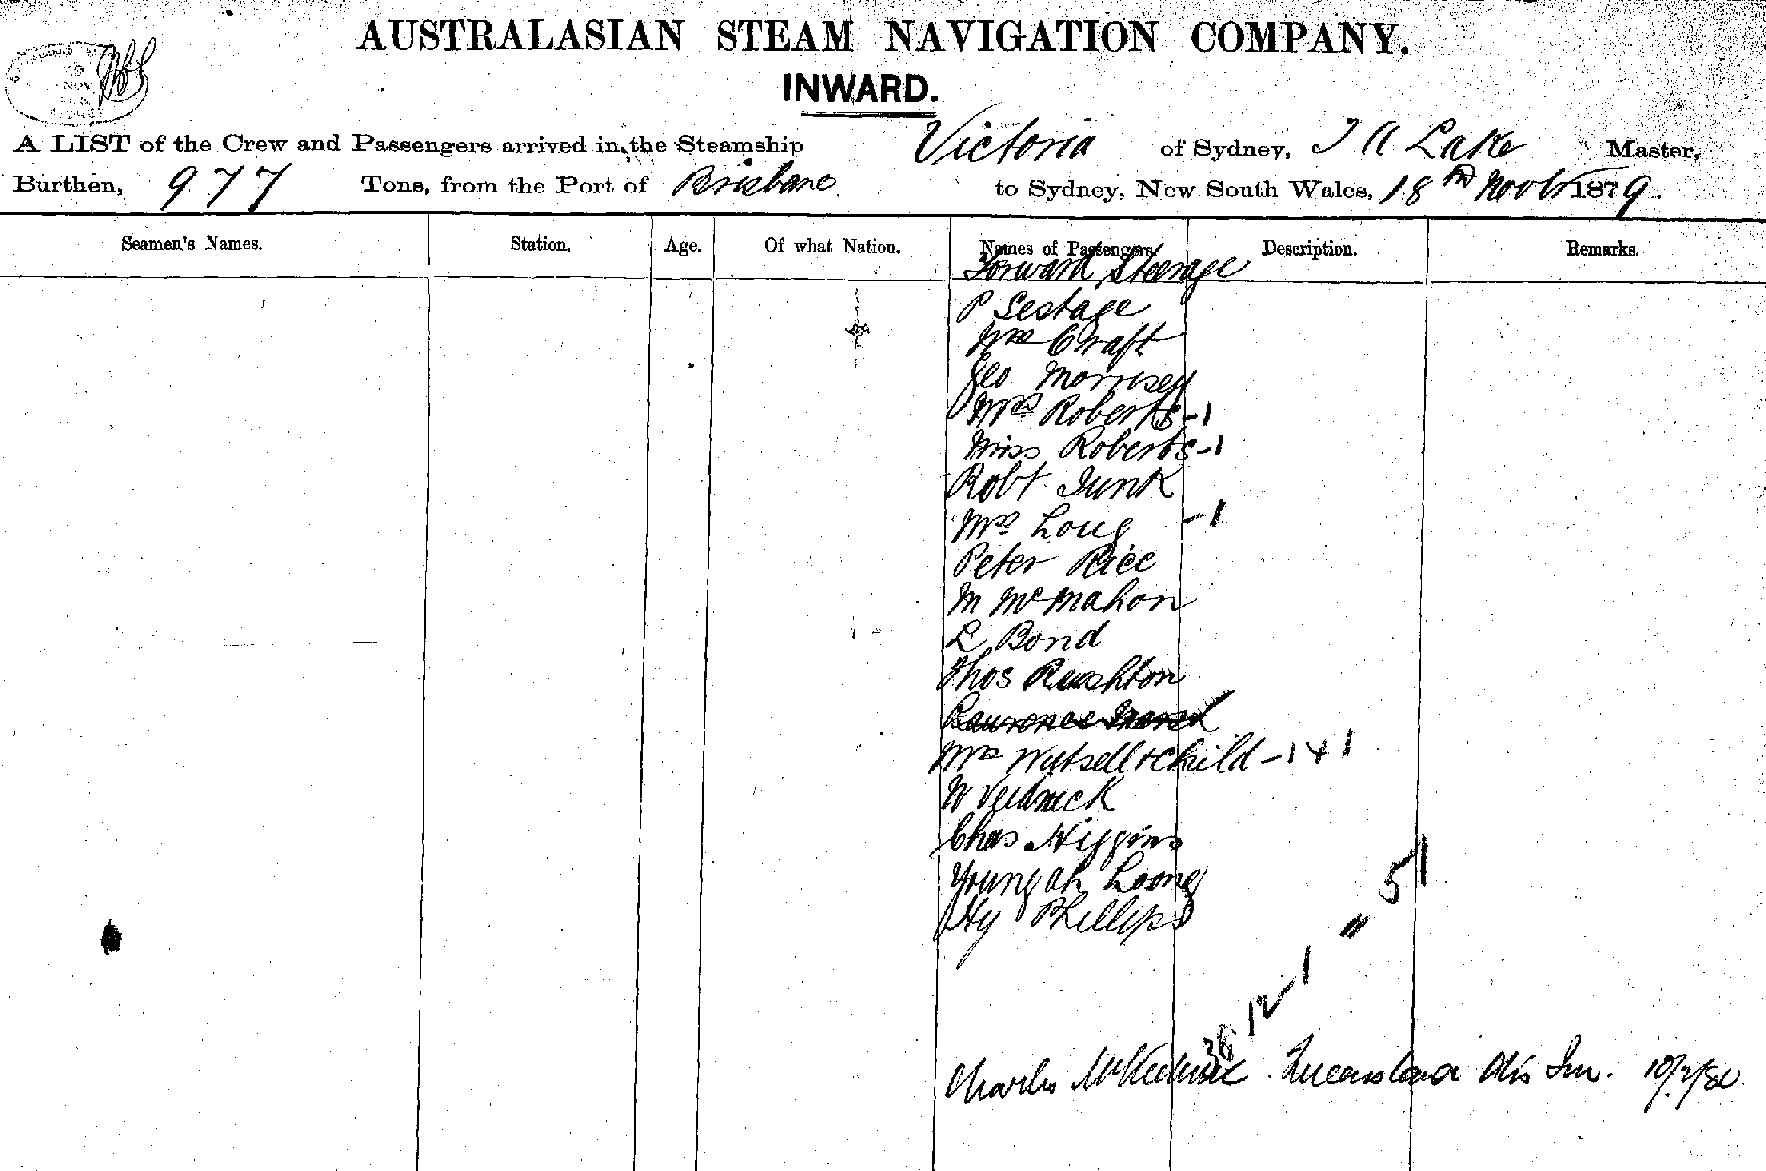 AUSTRALASIAN STEAM NAVIGATION COMPANY.
INWARD.
A LIST of the Crew and Passengers arrived in the Steamship Victoria of Sydney, T A Lake Master,
Burthen, 977 Tons, from the Port of Brisbane to Sydney, New South Wales, 18th Novbr 1879.
Seamen's Names. Station. Age. Of what Nation. Names of Passengers. Description. Remarks.
Forward Steerage
P Sestage
Wm Craft
Geo Morrisey
Mrs Roberts - 1
Miss Roberts - 1
Robt Junk
Mrs Long - 1
Peter Rice
M McMahon
L Bond
Thos Rushton
Lawrence
Mrs Wutsell + child - 1 + 1
W
Chas Higgins
Young ah Loong
Hy Phillips
5 1
"
12 - 1
Charles Queensland